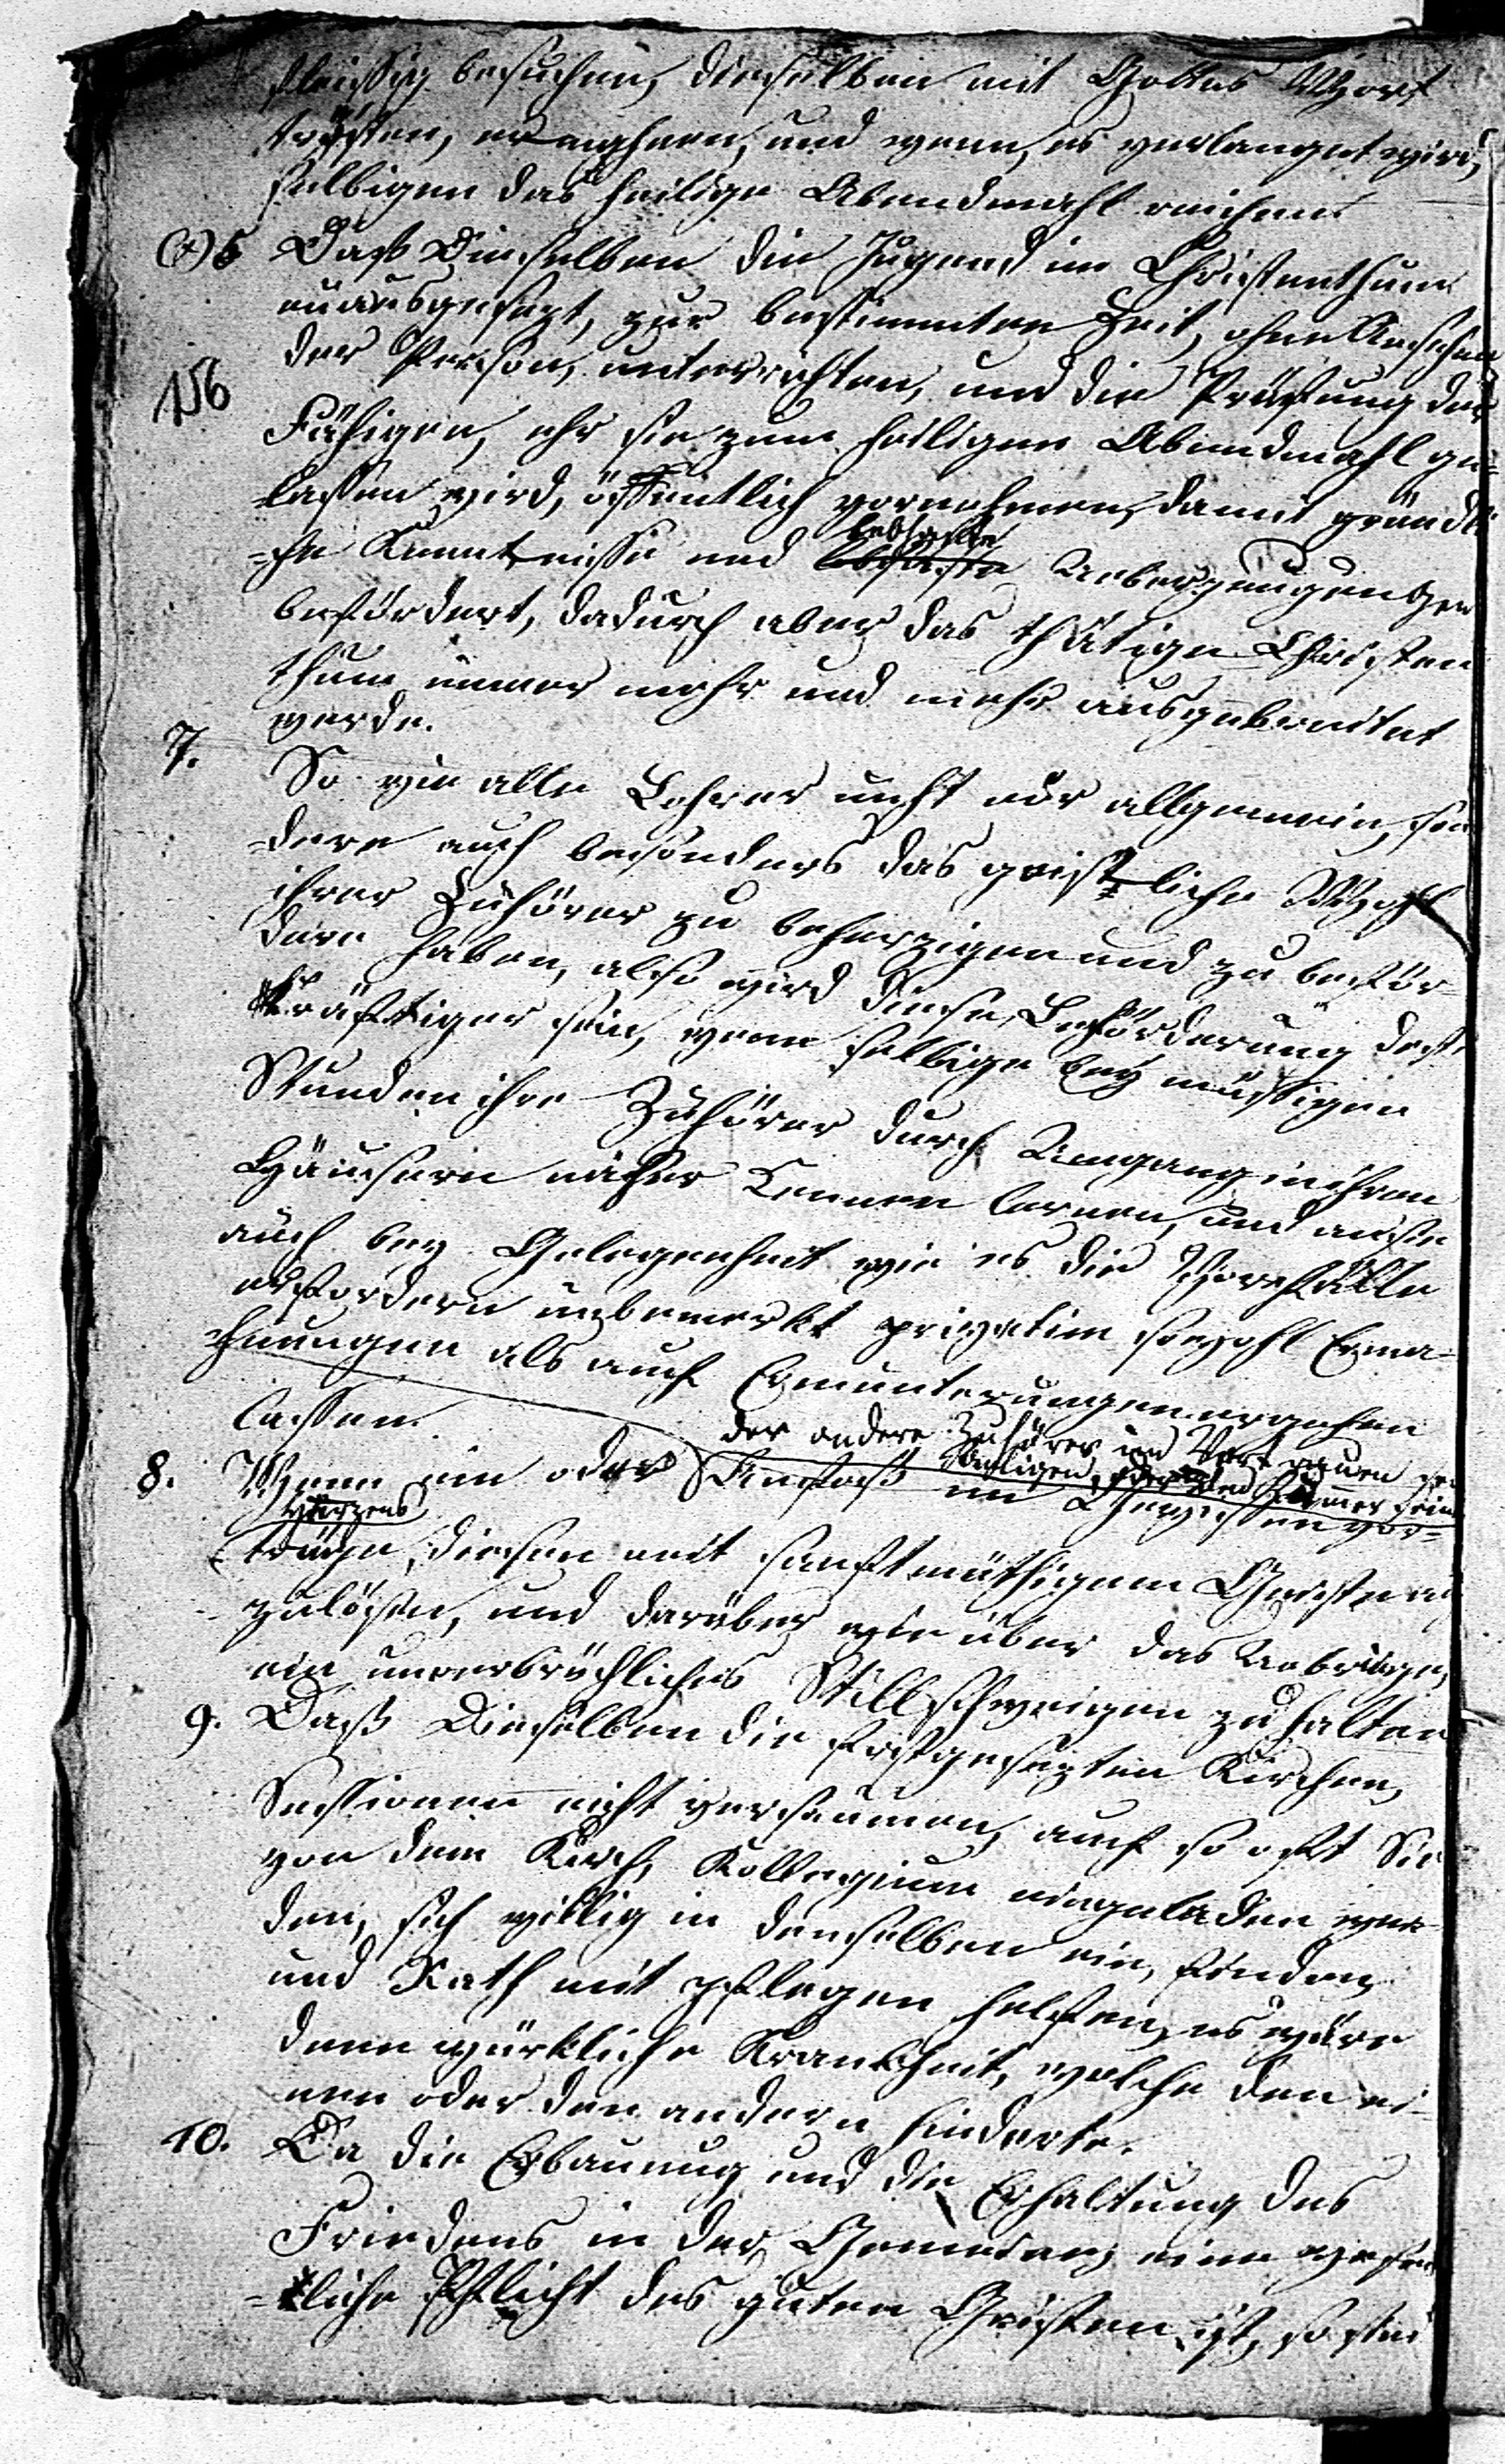 fleissig besuchen, dieselben mit Gottes Wort
trösten, ermahnen, und wenn, es verlanget wird,
selbigen das heilige Abendmahl reichen.
6 Daß Dieselben die Jugend im Christenthum
unausgesezt, zur bestimmten Zeit, ohne Ansehen
der Person, unterrichten, und die Prüfung der
156
Fähigen, ehe sie zum heiligen Abendmahl ge=
lassen wird, öffentlich vornehmen, damit gründli
=che Kenntnisse und lebhafte Ueberzeugungen
befördert, dadurch aber das thätige Christen
thum immer mehr und mehr ausgebreitet
werde.
7. So wie alle Lehrer nicht nur allgemein, son
dern auch besonders das geistliche Wohl
ihrer Zuhörer zu beherzigen und zu beför-
dern haben, also wird diese Beförderung desto
kräftiger sein, wenn selbige bey müssigen
Stunden ihre Zuhörer durch Umgang in ihren
Häusern näher Kennen lernen, und an sie
auch bey Gelegenheit wie es die Vorfälle
erfordern unbemerkt privatim sowohl Erma-
hnungen als auch Ermunterungen ergehen
lassen.
der andere Zuhörer im Vertrauen
8. Wenn ein oder Anstoß im Gewissen vor=
Herzens
trüge, diesen mit sanftmüthigem Geiste
zulösen, und darüber wie über das Uebrige,
ein unverbrüchliches Stillschweigen zu halten
9. Daß Dieselben die festgesezten Kirchen,
Sessionen nicht versaumen, auch so oft Sie
von dem Kirch, Kollegium eingeladen wer-
den, sich willig in demselben ein, finden,
und Rath mit pflegen helfen, es wäre
denn würkliche Krankheit, welche den ei-
nen oder den andern hinderte.
10. Da die Erbauung und die Erhaltung des
Friedens in der Gemeine, eine wesen
=tliche Pflicht des guten Christen ist, so